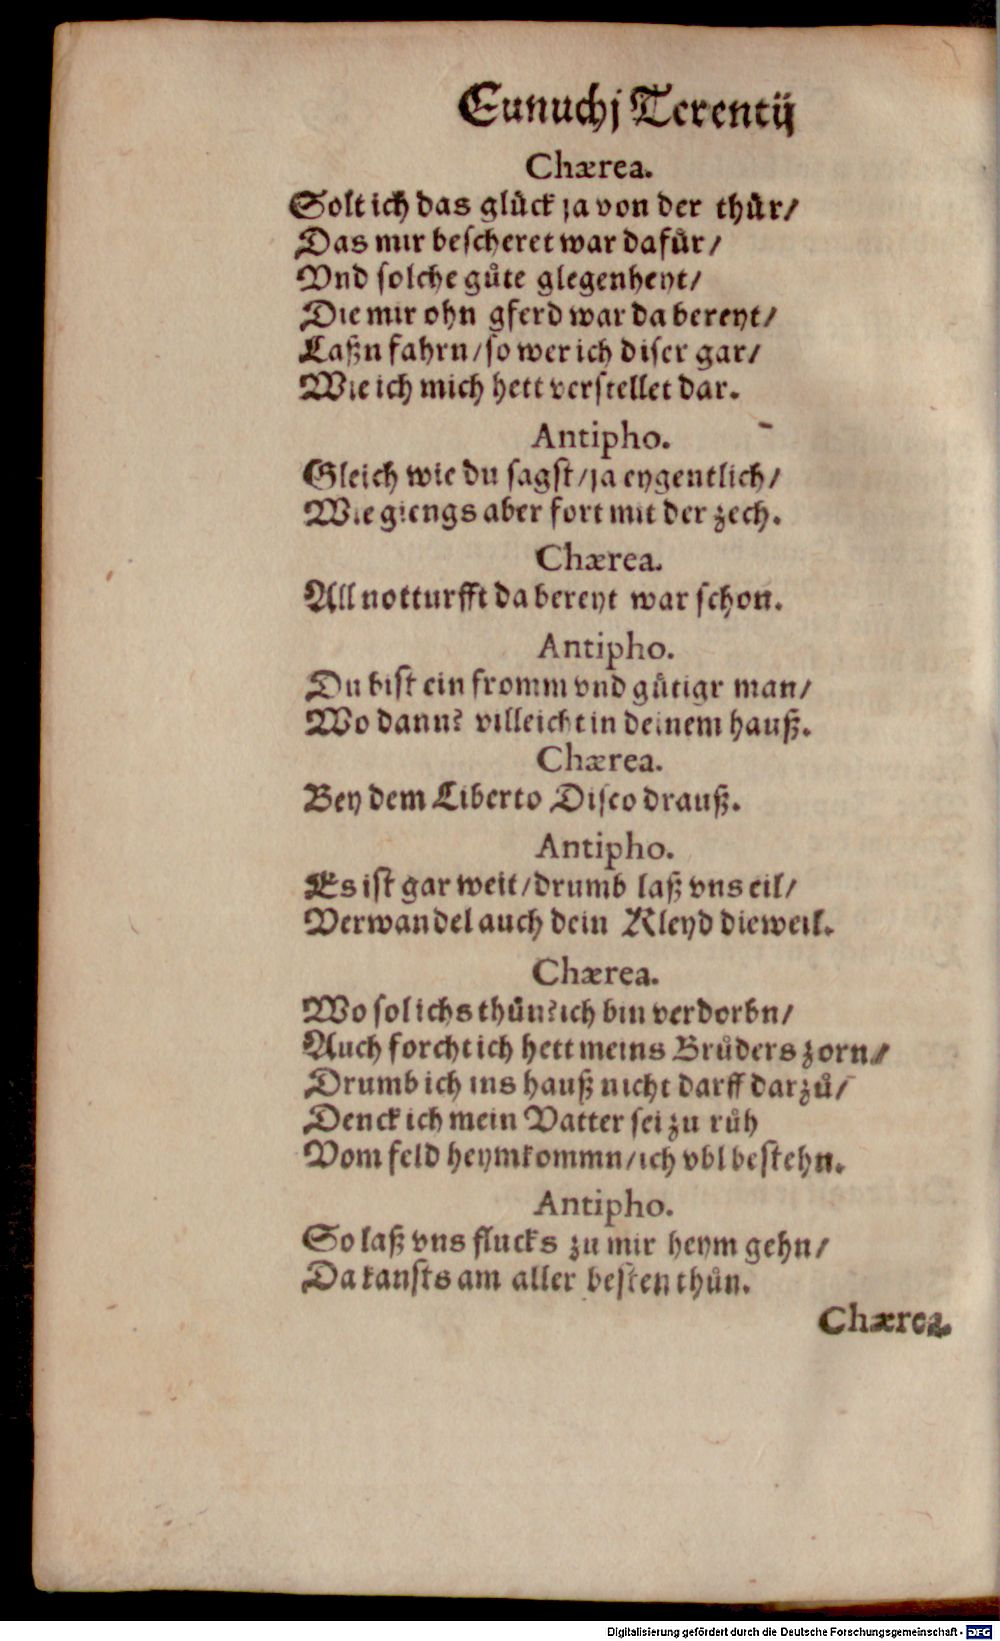 Eunuchj Terentij
Chærea.
Solt ich das glück ja von der thür/
Das mir bescheret war dafuͤr/
Vnd solche guͤte glegenheyt/
Die mir ohn gferd war da bereyt/
Laßn fahrn/so wer ich diser gar/
Wie ich mich hett verstellet dar.
Antipho.
Gleich wie du sagst/ja eygentlich/
Wie giengs aber fort mit der zech.
Chærea.
All notturfft da bereyt war schon.
Antipho.
Du bist ein fromm vnd guͤtigr man/
Wo dann? villeicht in deinem hauß.
Chærea.
Bey dem Liberto Disco drauß.
Antipho.
Es ist gar weit/drumb laß vns eil/
Verwandel auch dein Kleyd dieweil.
Chærea.
Wo sol ichs thuͤn?ich bin verdorbn/
Auch forcht ich hett meins Bruͤders zorn/
Drumb ich ins hauß nicht darff darzuͦ/
Denck ich mein Vatter sei zu ruͦh
Vom feld heymkommn/ich vbl bestehn.
Antipho.
So laß vns flucks zu mir heym gehn/
Da kansts am aller besten thuͦn.
Chærea.
Digitalisierung gefördert durch die Deutsche Forschungsgemeinschaft - DFG